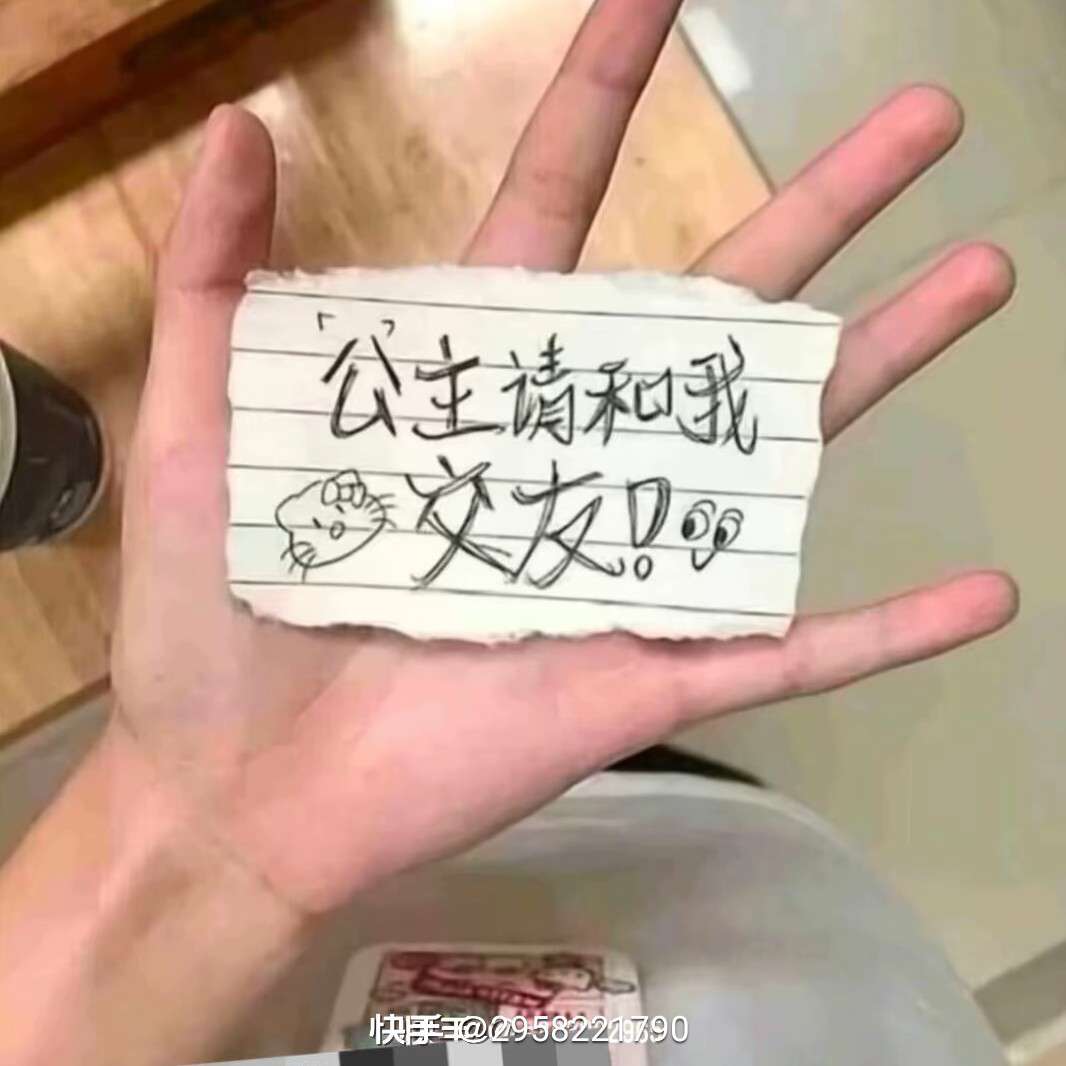 「公」主请和我
交友!
快手 @2958221790